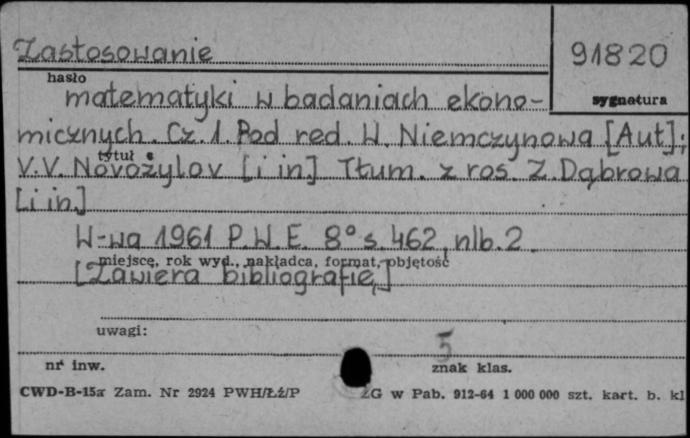 Zastosowanie
91820
hasło
sygnatura
matematyki w badaniach ekono-
micznych. Cz. 1. Pod red. W. Niemczynowa [Aut];
tytuł
V. V. Novožylov [i in.] Tłum. z ros. Z. Dąbrowa
[i in.]
W-wa 1961 P.W.E. 8° s. 462, nlb. 2.
miejsce, rok wyd., nakładca, format, objętość
[Zawiera bibliografię.]
uwagi:
5
nr inw.
znak klas.
CWD-B-15a Zam. Nr 2924 PWH/Łź/P
ZG w Pab. 912-64 1 000 000 szt. kart. b. kl